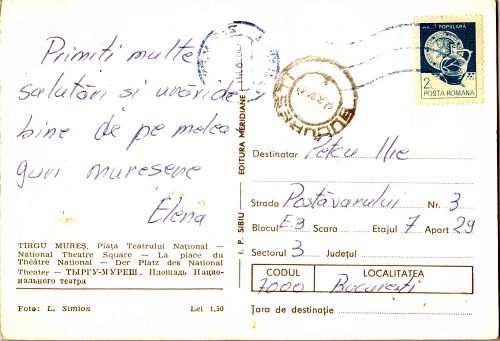 Primiti multe
salutări si urări de
bine de pe melea-
guri muresene
Elena
TIRGU MUREȘ. Piața Teatrului Național —
National Theatre Square — La place du
Théâtre National — Der Platz des National
Theater — ТЫРГУ-МУРЕШ. Площадь Нацио-
нального театра
Foto: L. Simion Lei 1,50
I. P. SIBIU EDITURA MERIDIANE
BUCUREȘTI
POPULARĂ
2L
POSTA ROMANA
Destinatar Petcu Ilie
Strada Postăvarului Nr. 3
Blocul E3 Scara Etajul 7 Apart 29
Sectorul 3 Județul
CODUL LOCALITATEA
7000 București
Țara de destinație